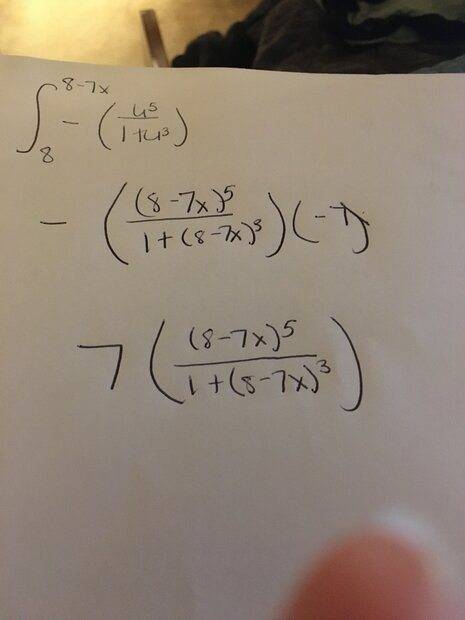 ∫₈^(8-7x) - (u⁵/(1+u³))
- ((8-7x)⁵/(1+(8-7x)³))(-7)
7((8-7x)⁵/(1+(8-7x)³))